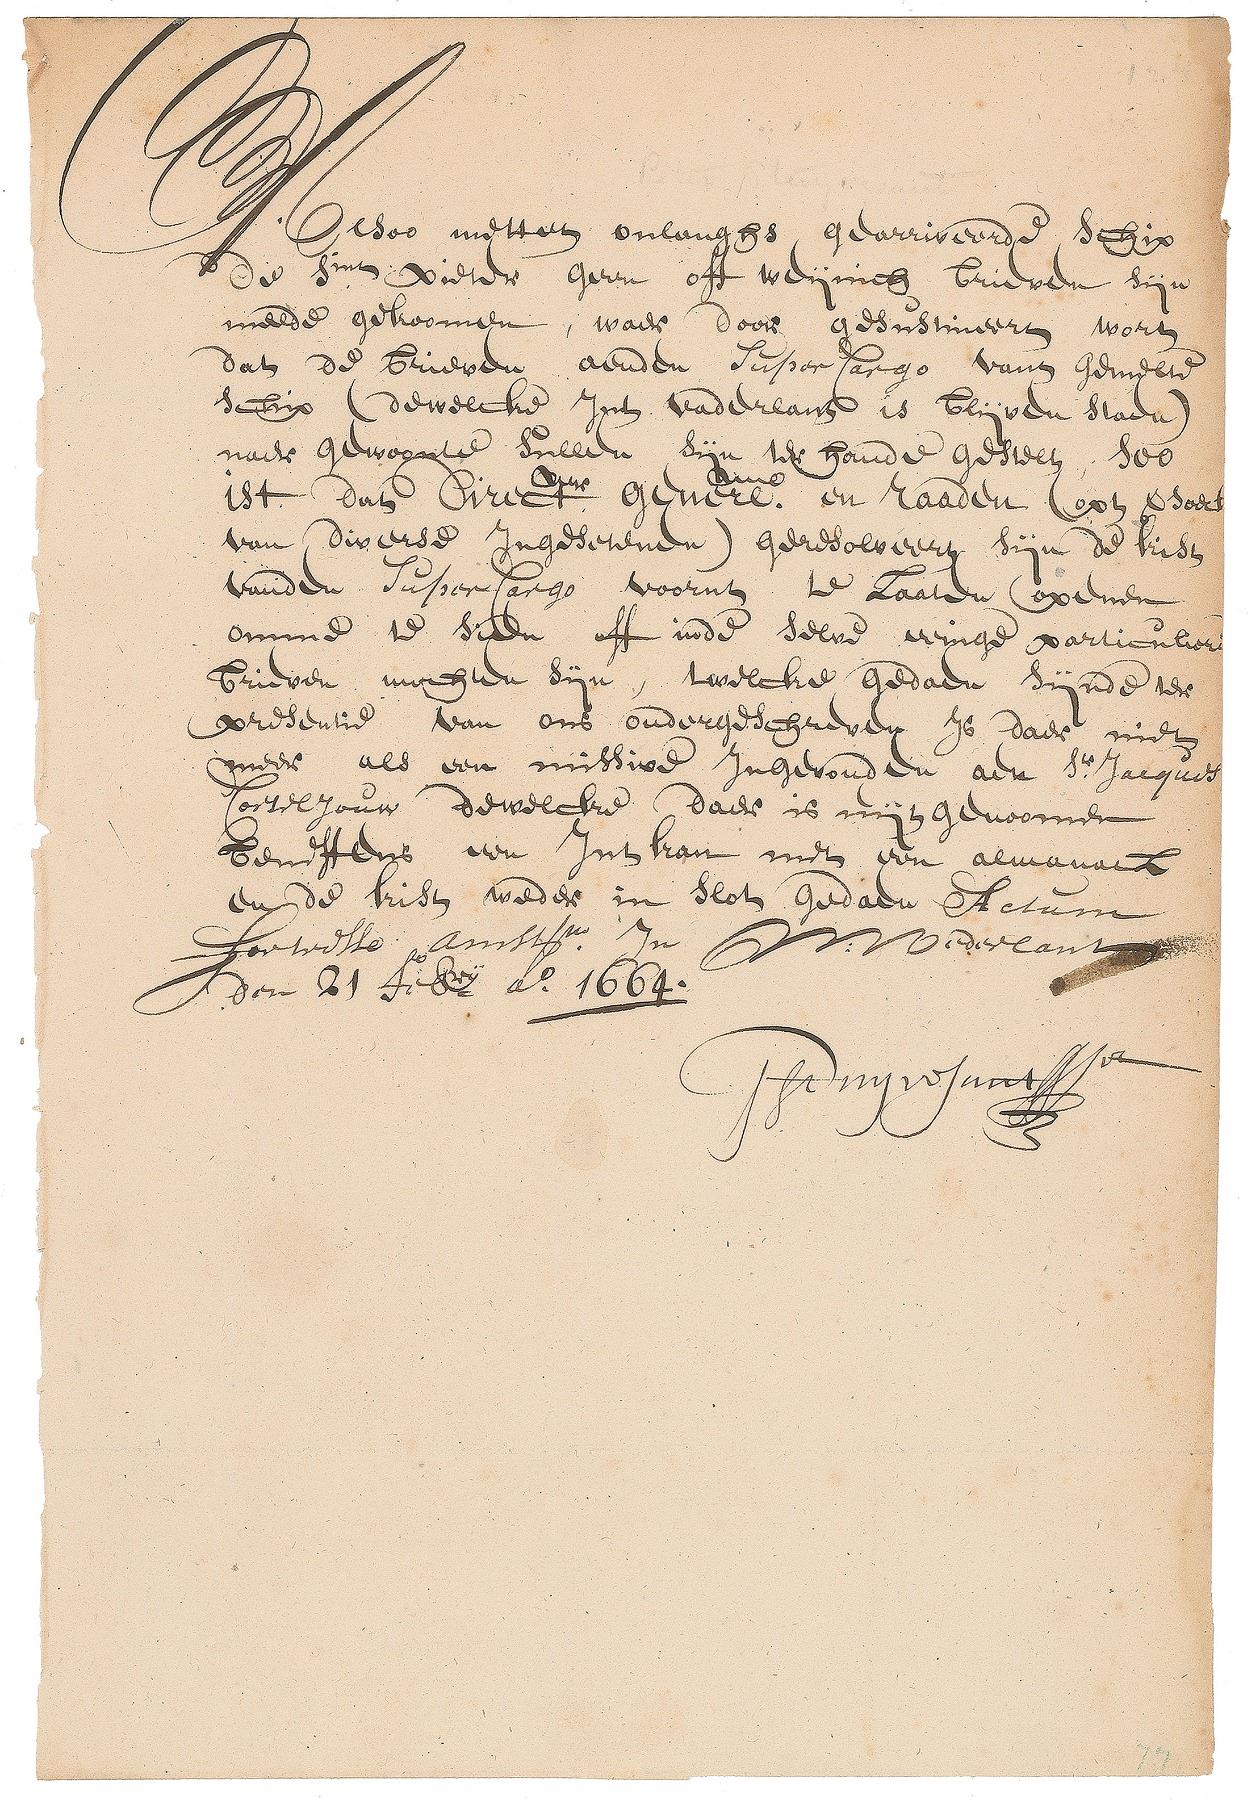 Alsoo mette onlanghs gearriveerde schip
de Sint Pieter geen off weijnich brieven sijn
meede gekoomen, waer door gesustineert wort
dat de brieven aenden Super Cargo vant gemelte
schip (dewelcke Int vaderlant is blijven staen)
naer gewoonte sullen sijn ter hande gestelt, soo
ist dat Direct. gener. en raaden (opt
van diverse Ingesetenen) geresolveert sijn de kist
vanden Super Cargo voornt te Laaten openen
omme te sien off inde selve eenige particuliere
brieven mochten sijn, twelcke gedaen sijnde ter
presentie van ons ondergeschreven Is daer niet
meer als een missive Ingevonden aen Sr. Jacques
Corteljouw dewelcke daer is uijtgenoomen
beneffens een Intkan met een almanack
en de kist weder in slot gedaen Actum
Fortresse Amst. In N. Nederlant
den 21 Feb. ao. 1664.
P Stuyvesant
77